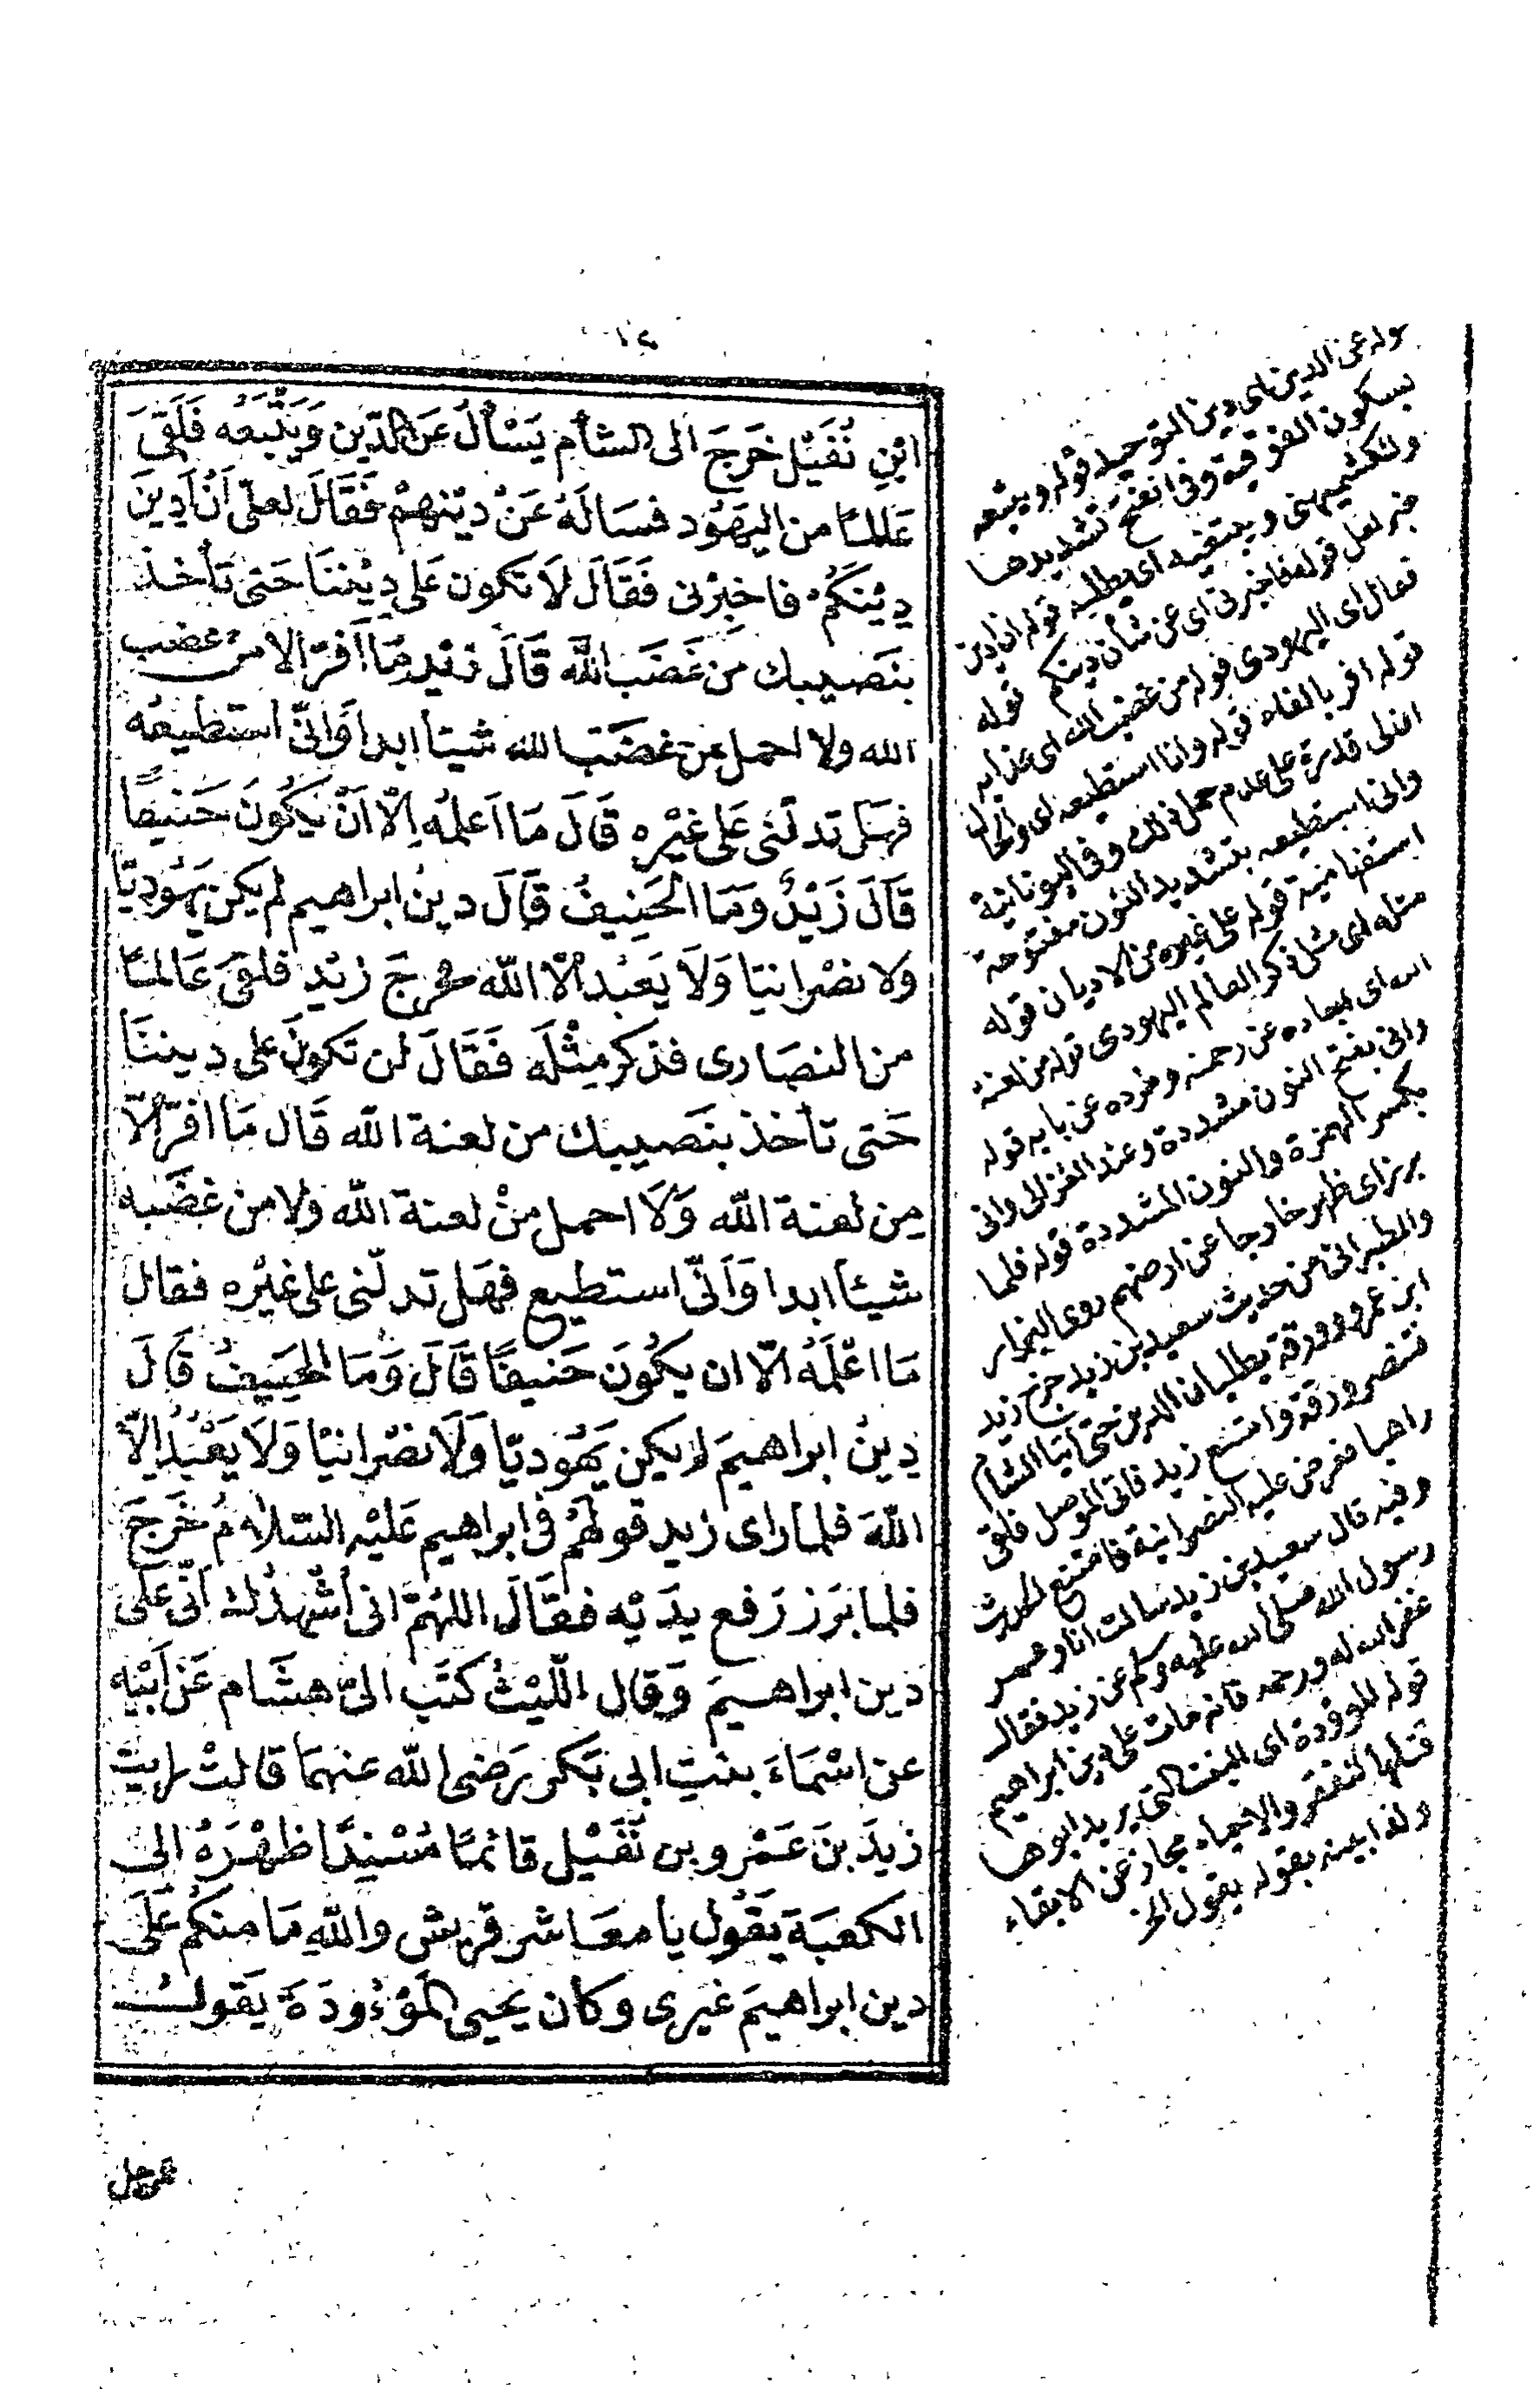 ١٤
ابْنِ نُفَيْل خَرَجَ الى الشأم يَسْألُ عَنِ الدّين وَيَتَّبَعُه فَلَقَىَ
عَالمـًا من اليَهُود فسَالَهُ عَنْ ديْنهمْ فَقَالَ لعلّى اَنْ اَدِينَ
دِيْنَكُمْ فاخبِرْنى فَقَالَ لاَ تكون عَلى دِيْننَا حَتى تَأخذ
بنَصيبك من غَضَب اللّه قَالَ زيْد مَا اَفرّ الا من غضب
الله ولا احمل من غضَب الله شيئا ابدا وَاَنّى استطيعُه
فهَل تدلّنى عَلى غيْره قَالَ مَا اَعلمُه اِلاّ اَنْ يَكُونَ حَنيفًا
قَالَ زَيْدٌ وَمَا الحَنِيفُ قَالَ دينُ ابراهيم لم يكن يَهُوديّا
ولا نصْرانيّا وَلَا يَعْبُد اِلاّ اللّه فخرجَ زيْد فلقىَ عَالمًا
من النصَارى فذكر مِثْلَه فَقَالَ لن تكونَ على ديننَا
حَتى تأخذ بنَصيبك من لعنة اللّه قَال مَا افرّ اِلاّ
مِن لعنة اللّه وَلَا احمل منْ لعنة اللّه وَلا من غضَبه
شيئا ابدا وَاَنّى استطيع فهَل تدلّنى على غيْره فقال
مَا اعْلَمُه الاّ ان يكُونَ حَنيفًا قَالَ وَمَا الحَنِيفُ قَالَ
دِينُ ابراهيمَ لم يكن يَهُوديّا وَلَا نصْرانيّا وَلَا يَعْبُدُ اِلاّ
اللّهَ فلما راى زيد قولهُمْ فى ابراهيم عَليْه السّلامُ خَرَجَ
فلما بَرَز رَفع يدَيْه فقَالَ اللهُمّ انى اُشْهدُك اَنّى عَلى
دَين ابراهيمَ وَقال اللّيْثُ كتَب الىّ هشَام عَن اَبيْه
عن اسْمَاءَ بنتِ ابى بَكر رَضى اللّه عنهمَا قالتْ رايت
زيدَ بنَ عَمْرو بن نفَيْل قائمًا مُسْنِدًا ظهْرَهُ الى
الكعبَة يَقُول يا معَاشر قريش واللّهِ مَا منكُم عَلَى
دين ابراهيمَ غيرى وكان يحيى المَوْءُودَةَ يَقول
قوله عن الدين اى دين التوحيد قوله ويتبعه
بسكون الفوقية وفى الفتح تشديدها
وللكشميهنى ويبتغيه اى يطلبه قوله ان ادين
خبر لعل قوله فاخبرنى اى عن شأن دينكم قوله
فقال اى اليهودى قوله من غضب الله اى عذابه
قوله افر بالفاء قوله وانا استطيعه اى والحال
ان لى قدرة على عدم حمل ذلك وفى اليونانية
وانى استطيعه بتشديد النون مفتوحة
استفهامية قوله على غيره من الاديان قوله
مثله اى مثل ذكر العالم اليهودى قوله من لعنة
الله اى ابعاده عن رحمته وطرده عن بابه قوله
وانى بفتح النون مشددة وعند الغزالى وانى
بكسر الهمزة والنون المشددة قوله فلما
برز اى ظهر خارجا عن ارضهم روى البزار
والطبرانى من حديث سعيد بن زيد خرج زيد
ابن عمرو وورقة يطلبان الدين حتى اتيا الشام
فتنصر ورقة وامتنع زيد فاتى الموصل فلقى
راهبا فعرض عليه النصرانية فامتنع الحديث
وفيه قال سعيد بن زيد سالت انا وعمر
رسول الله صلى الله عليه وسلم عن زيد فقال
غفر الله له ورحمه فانه مات على دين ابراهيم
قوله الموؤدة اى البنت التى يريد ابوها
قتلها لنفقر والاحياء مجاز عن الابقاء
ولذا بينه بقوله يقول الخ